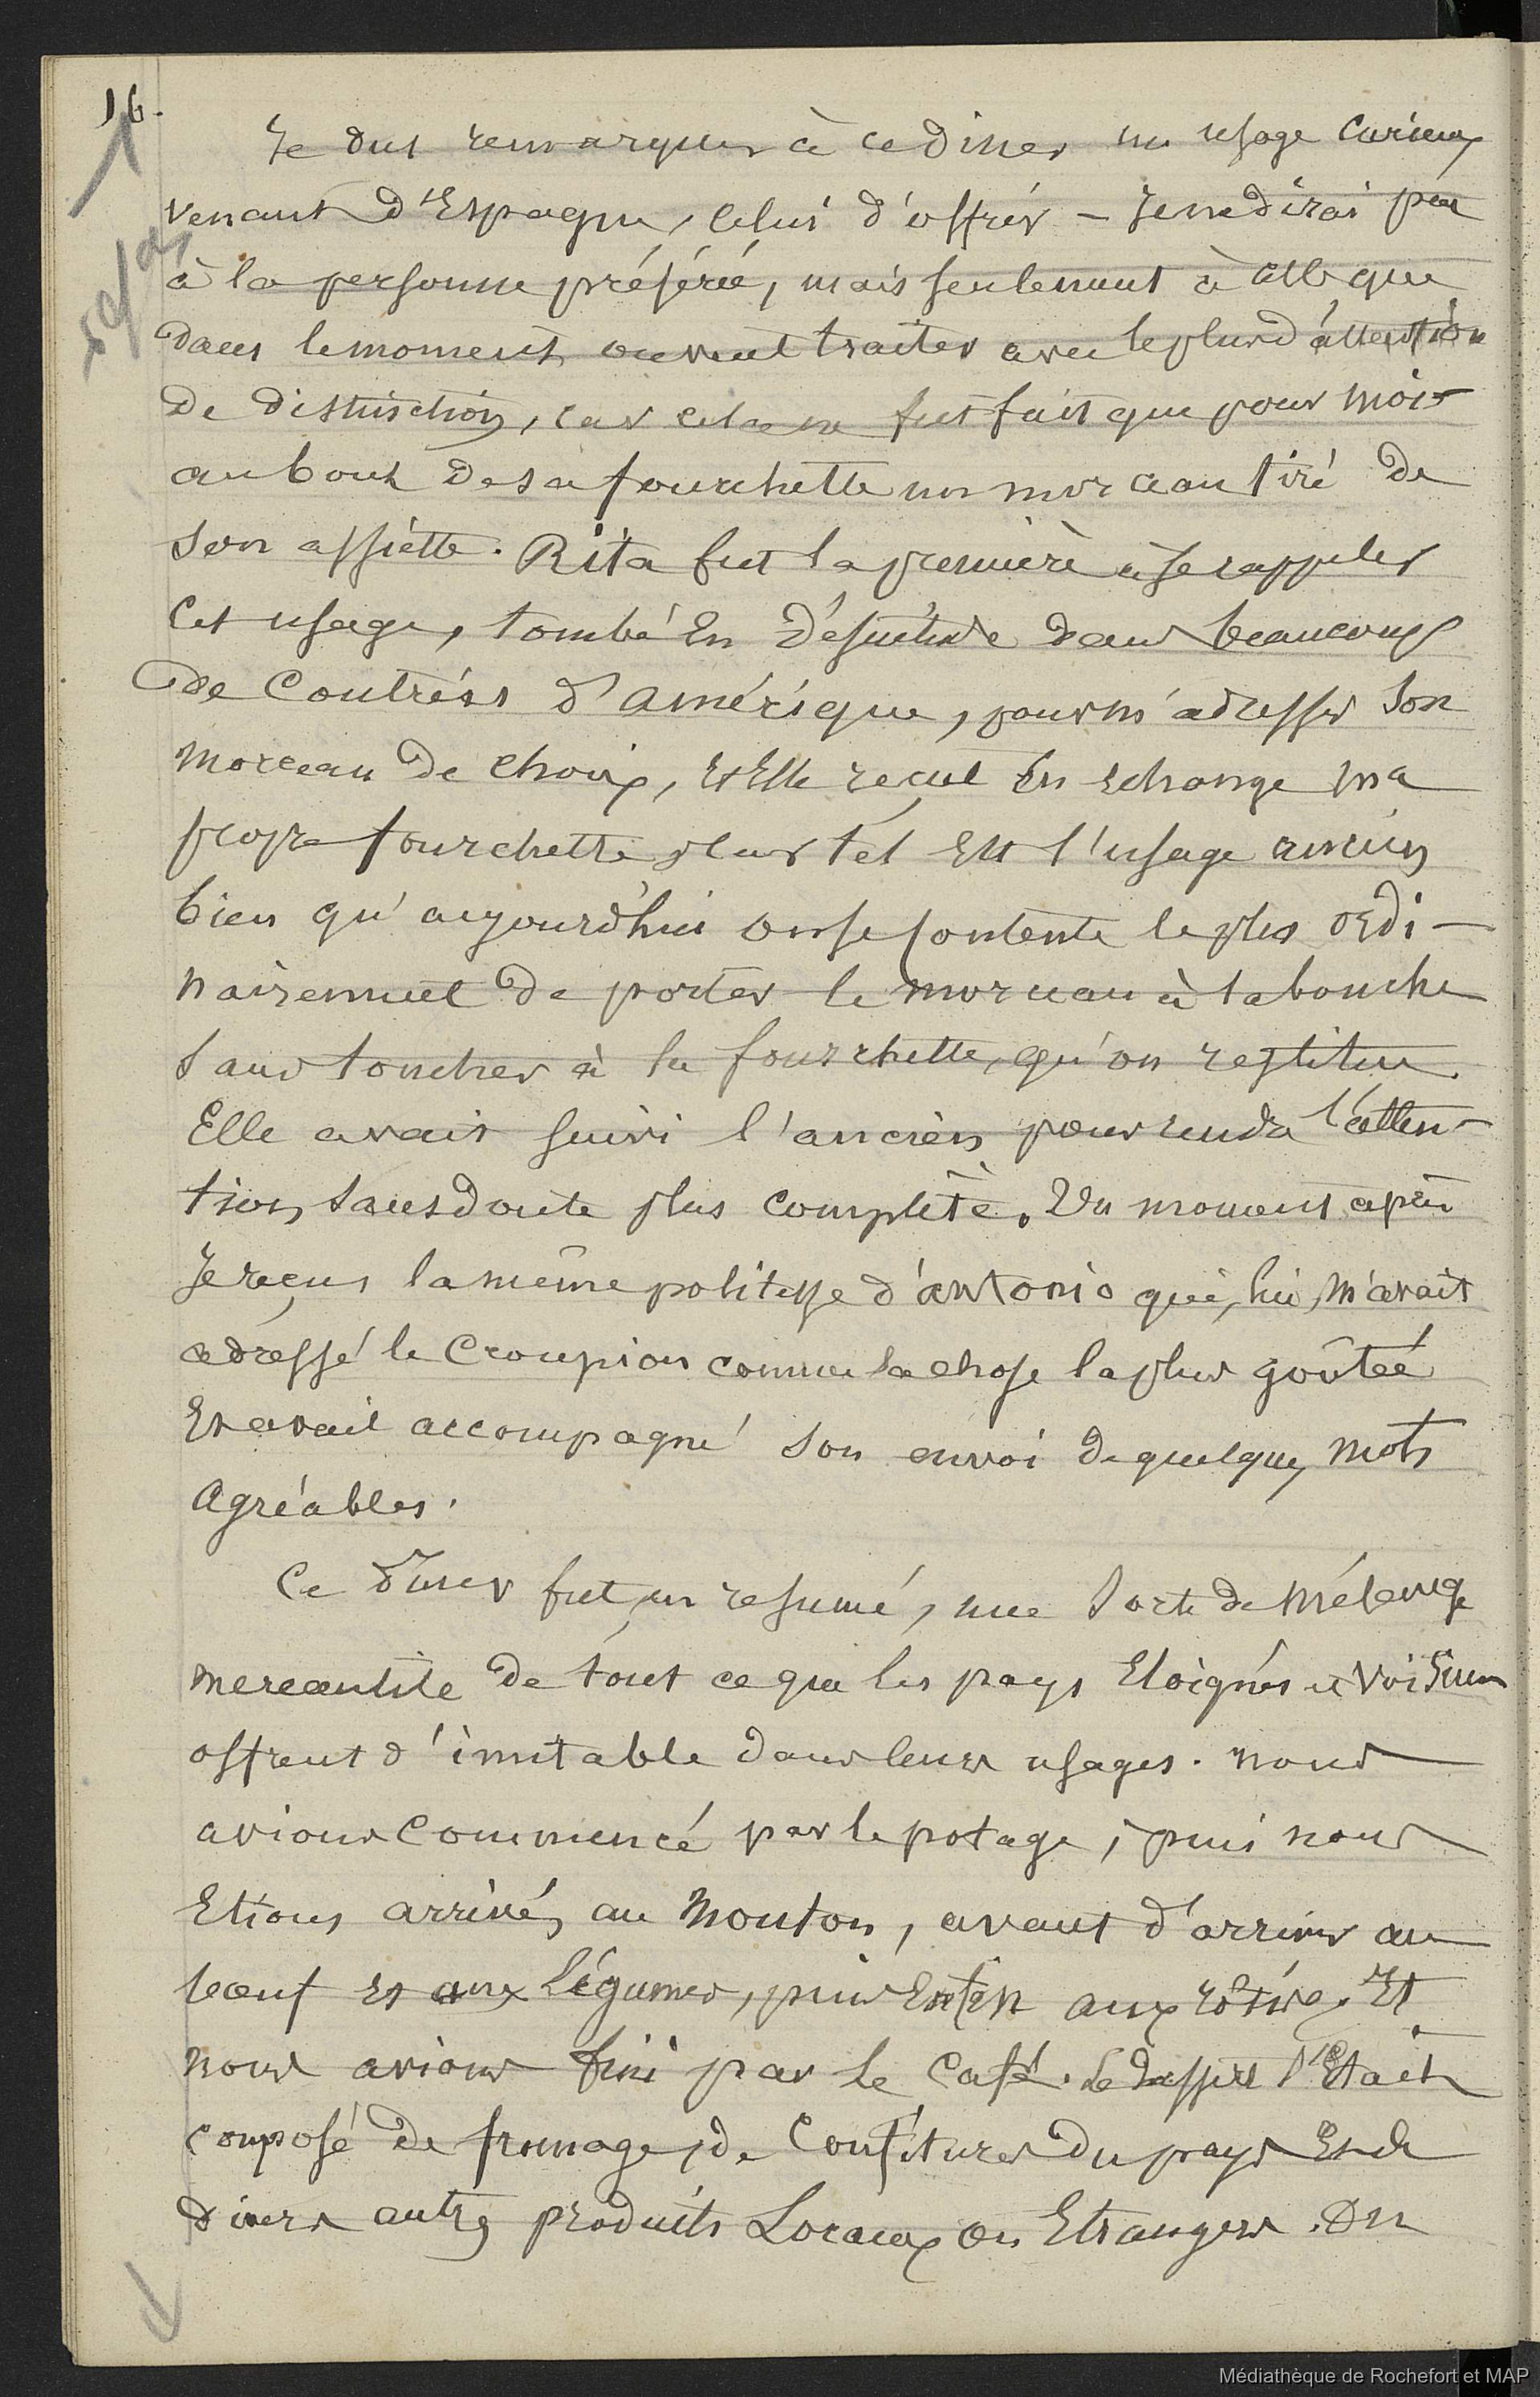 16.
Je dus remarquer à ce diner un usage curieux
venant d'Espagne, celui d'offrir – Je ne dirai pas
à la personne préférée, mais seulement à celle que
dans le moment on veut traiter avec le plus d'attention
de distinction, car cela ne fut fait que pour moi –
au bout de sa fourchette un morceau tiré de
son assiette. Rita fut la première à se rappeler
cet usage, tombé en désuétude dans beaucoup
de contrées d'amérique, pour m'adresser son
morceau de choix, et elle reçut en echange ma
propre fourchette, car tel est l'usage ancien
bien qu'aujourd'hui on se contente le plus ordi-
nairement de porter le morceau à la bouche
sans toucher à la fourchette, qu'on restitue.
Elle avait suivi l'ancien pour rendre l'atten-
tion, sans doute plus complète. Un moment après
Je reçus la même politesse d'antonio qui, lui, m'avait
adressé le croupion comme la chose la plus goûtée
et avait accompagné son envoi de quelques mots
agréables.
Ce diner fut, en resumé, une sorte de mélange
mercantile de tout ce que les pays eloignés et voisins
offrent d'imitable dans leurs usages. nous
avions commencé par le potage, puis nous
etions arrivés au mouton, avant d'arriver au
bœuf et aux légumes, puis enfin aux rôtis. Et
nous avions fini par le café. Le dessert s'etait
composé de fromage, de confitures du pays et de
divers autres produits Locaux ou Etrangers. On
Médiathèque de Rochefort et MAP